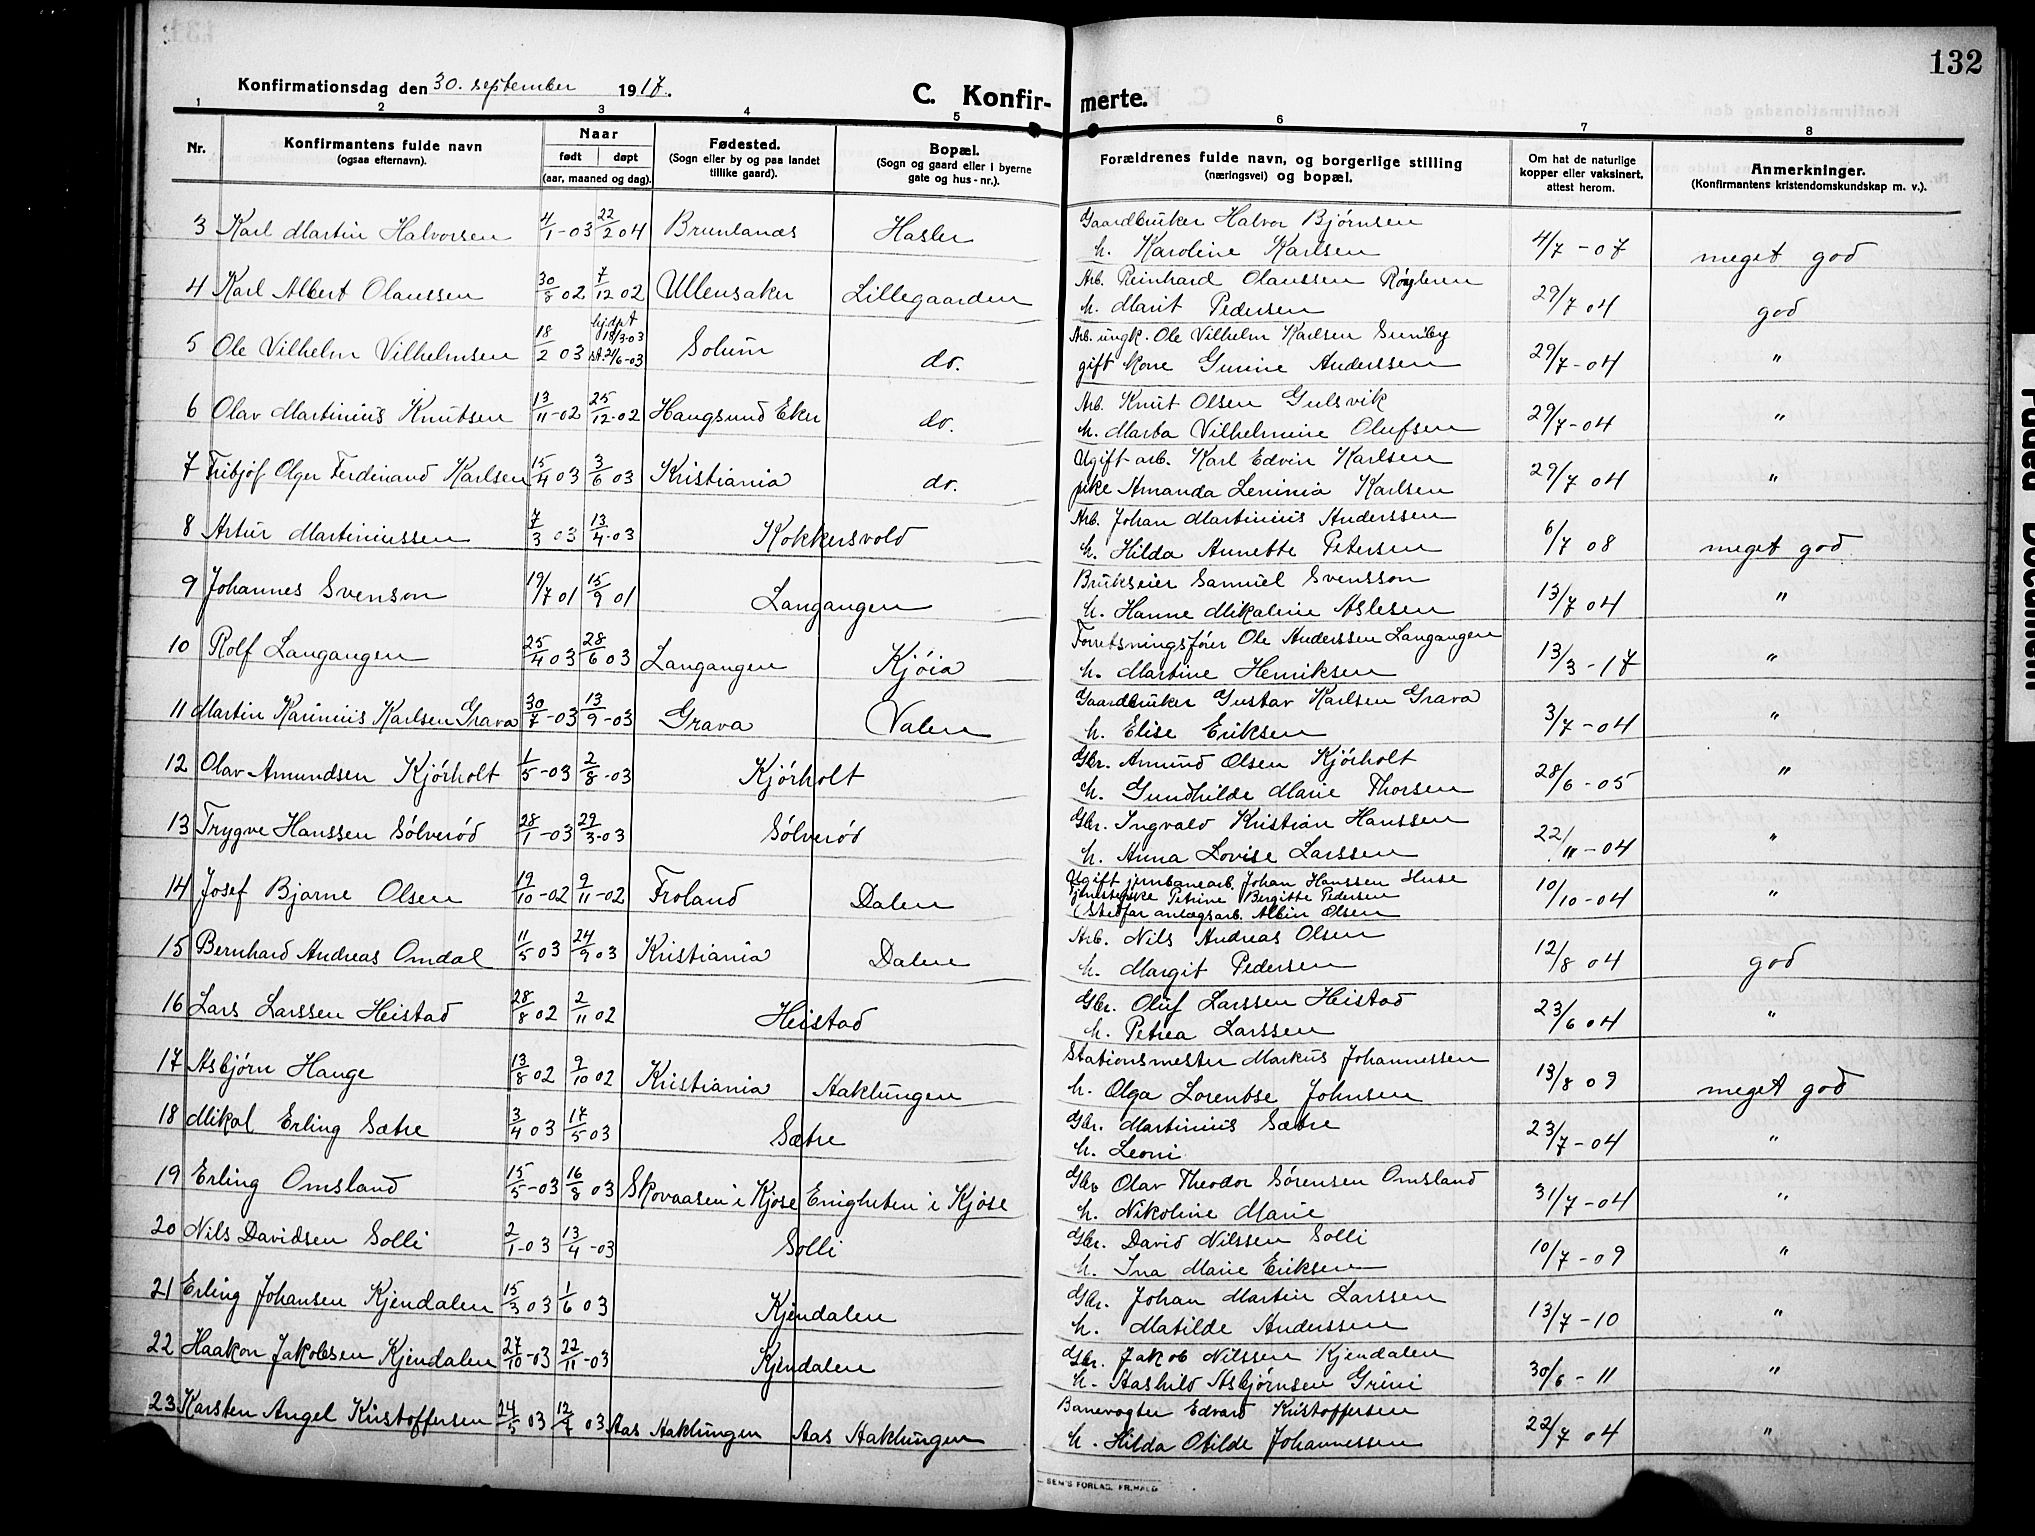 132
Konfirmationsdag den 30. september 1917.
C. Konfirmerte.
1 2 3 4 5 6 7 8
Nr. Konfirmantens fulde navn (ogsaa efternavn). Naar født døpt (aar, maaned og dag). Fødested. (Sogn eller by og paa landet tillike gaard). Bopæl. (Sogn og gaard eller i byerne gate og hus-nr.). Forældrenes fulde navn, og borgerlige stilling (næringsvei) og bopæl. Om hat de naturlige kopper eller vaksinert, attest herom. Anmerkninger. (Konfirmantens kristendomskundskap m. v.).
3 Karl Martin Halvorsen 4/1-03 22/2 04 Brunlanes Hasler Gaardbruker Halvor Bjørnsen
h. Karoline Karlsen 4/7-07 meget god
4 Karl Albert Olaussen 30/8 02 7/12 02 Ullensaker Lillegaarden Arb. Reinhard Olaussen
h. Marit Pedersen 29/7 04 god
5 Ole Vilhelm Vilhelmsen 18/2 03 hj.døpt 18/3-03 st. 21/6-03 Solum do. Arb. ungk. Ole Vilhelm Karlsen Sundby
gift kone Gurine Anderssen 29/7-04 "
6 Olav Martinius Knutsen 13/11-02 25/12-02 Haugsund Eker do. Arb. Knut Olsen Gulsvik
h. Marta Vilhelmine Olufsen 29/7-04 "
7 Fritjof Olger Ferdinand Karlsen 15/4 03 3/6 03 Kristiania do. Ugift arb. Karl Edvin Karlsen
pike Amanda Leninia Karlsen 29/7 04 "
8 Artur Martiniussen 7/3 03 13/4-03 Kokkersvold Arb. Johan Martinius Anderssen
h. Hilda Annette Petersen 6/7 08 meget god
9 Johannes Svenson 19/7 01 15/9 01 Langangen Brukseier Samuel Svensson
h. Hanne Mikaline Aslesen 13/7 04 "
10 Rolf Langangen 25/4 03 28/6 03 Langangen Kjøia Forretningsfører Ole Anderssen Langangen
h. Martine Henriksen 13/3-17 "
11 Martin Karinius Karlsen Grava 30/7-03 13/9-03 Grava Valen Gaardbruker Gustav Karlsen Grava
h. Elise Eriksen 3/7-04 "
12 Olav Amundsen Kjørholt 1/5-03 2/8-03 Kjørholt Gbr. Amund Olsen Kjørholt
h. Gundhilde Marie Thorsen 28/6-05 "
13 Trygve Hanssen Sølverød 28/1-03 29/3-03 Sølverød Gbr. Ingvald Kristian Hanssen
h. Anna Lovise Larssen 22/11-04 "
14 Josef Bjarne Olsen 19/10-02 9/11-02 Froland Dalen Ugift jernbanearb. Johan Hanssen Huse
tjenestepike Petrine Bergitte Pedersen
(Stedfar anlægsarb. Albin Olsen 10/10-04 "
15 Bernhard Andreas Omdal 11/5 03 24/9 03 Kristiania Dalen Arb. Nils Andreas Olsen
h. Margit Pedersen 12/8 04 god
16 Lars Larssen Heistad 28/8 02 2/11 02 Heistad Gbr. Oluf Larssen Heistad
h. Petrea Larssen 23/6 04 "
17 Asbjørn Hauge 13/8 02 9/10 02 Kristiania Aaklungen Stationsmester Markus Johannessen
h. Olga Lorentse Johnsen 13/8 09 meget god
18 Mikal Erling Sætre 3/4 03 17/5 03 Sætre Gbr. Martinius Sætre
h. Leoni 23/7-04 "
19 Erling Omsland 15/5-03 16/8 03 Skovaasen i Kjose Enigheten i Kjøse Gbr Olav Theodor Sørensen Omsland
h. Nikoline Marie 31/7-04 "
20 Nils Davidsen Solli 2/1-03 13/4-03 Solli Gbr. David Nilssen Solli
h. Ina Marie Eriksen 10/7-09 "
21 Erling Johansen Kjendalen 15/3 03 1/6 03 Kjendalen Gbr. Johan Martin Larssen
h. Matilde Anderssen 13/7-10 "
22 Haakon Jakobsen Kjendalen 27/10-03 22/11-03 Kjendalen Gbr. Jakob Nilssen Kjendalen
h. Aashild Asbjørnsen Grini 30/6-11 "
23 Karsten Angel Kristoffersen 24/5 03 12/7 03 Aas Aaklungen Aas Aaklungen Banevogter Edvard Kristoffersen
h. Hilda Otilde Johannessen 22/7 04 "
SEM'S FORLAG, FR.HALD